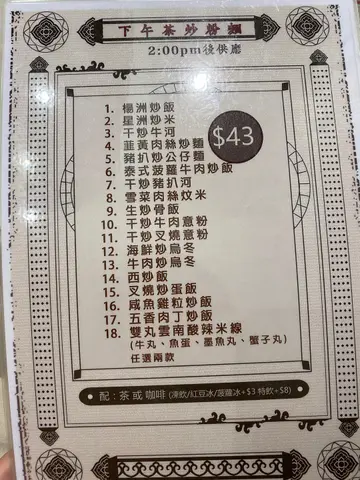 下午茶炒粉麵
2:00pm後供應
$43
1. 楊洲炒飯
2. 星洲炒米
3. 干炒牛河
4. 韮黃肉絲炒麵
5. 豬扒炒公仔麵
6. 泰式菠蘿牛肉炒飯
7. 干炒豬扒河
8. 雪菜肉絲炆米
9. 生炒骨飯
10. 干炒牛肉意粉
11. 干炒叉燒意粉
12. 海鮮炒烏冬
13. 牛肉炒烏冬
14. 西炒飯
15. 叉燒炒蛋飯
16. 咸魚雞粒炒飯
17. 五香肉丁炒飯
18. 雙丸雲南酸辣米線
(牛丸、魚蛋、墨魚丸、蟹子丸)
任選兩款
配：茶 或 咖啡 (凍飲/紅豆冰/菠蘿冰+$3 特飲+$8)